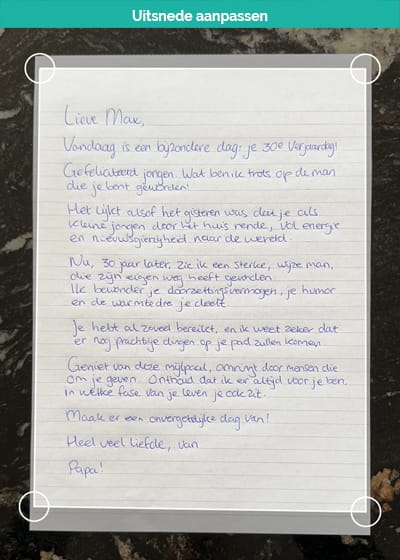 Uitsnede aanpassen
Lieve Max,
Vandaag is een bijzondere dag: je 30e verjaardag!
Gefeliciteerd jongen. Wat ben ik trots op de man
die je bent geworden!
Het lijkt alsof het gisteren was dat je als
kleine jongen door het huis rende, vol energie
en nieuwsgierigheid naar de wereld.
Nu, 30 jaar later, zie ik een sterke, wijze man,
die zijn eigen weg heeft gevonden.
Ik bewonder je doorzettingsvermogen, je humor
en de warmte die je deelt.
Je hebt al zoveel bereikt, en ik weet zeker dat
er nog prachtige dingen op je pad zullen komen.
Geniet van deze mijlpaal, omringt door mensen die
om je geven. Onthoud dat ik er altijd voor je ben,
in welke fase van je leven je ook zit.
Maak er een onvergetelijke dag van!
Heel veel liefde, van
Papa!